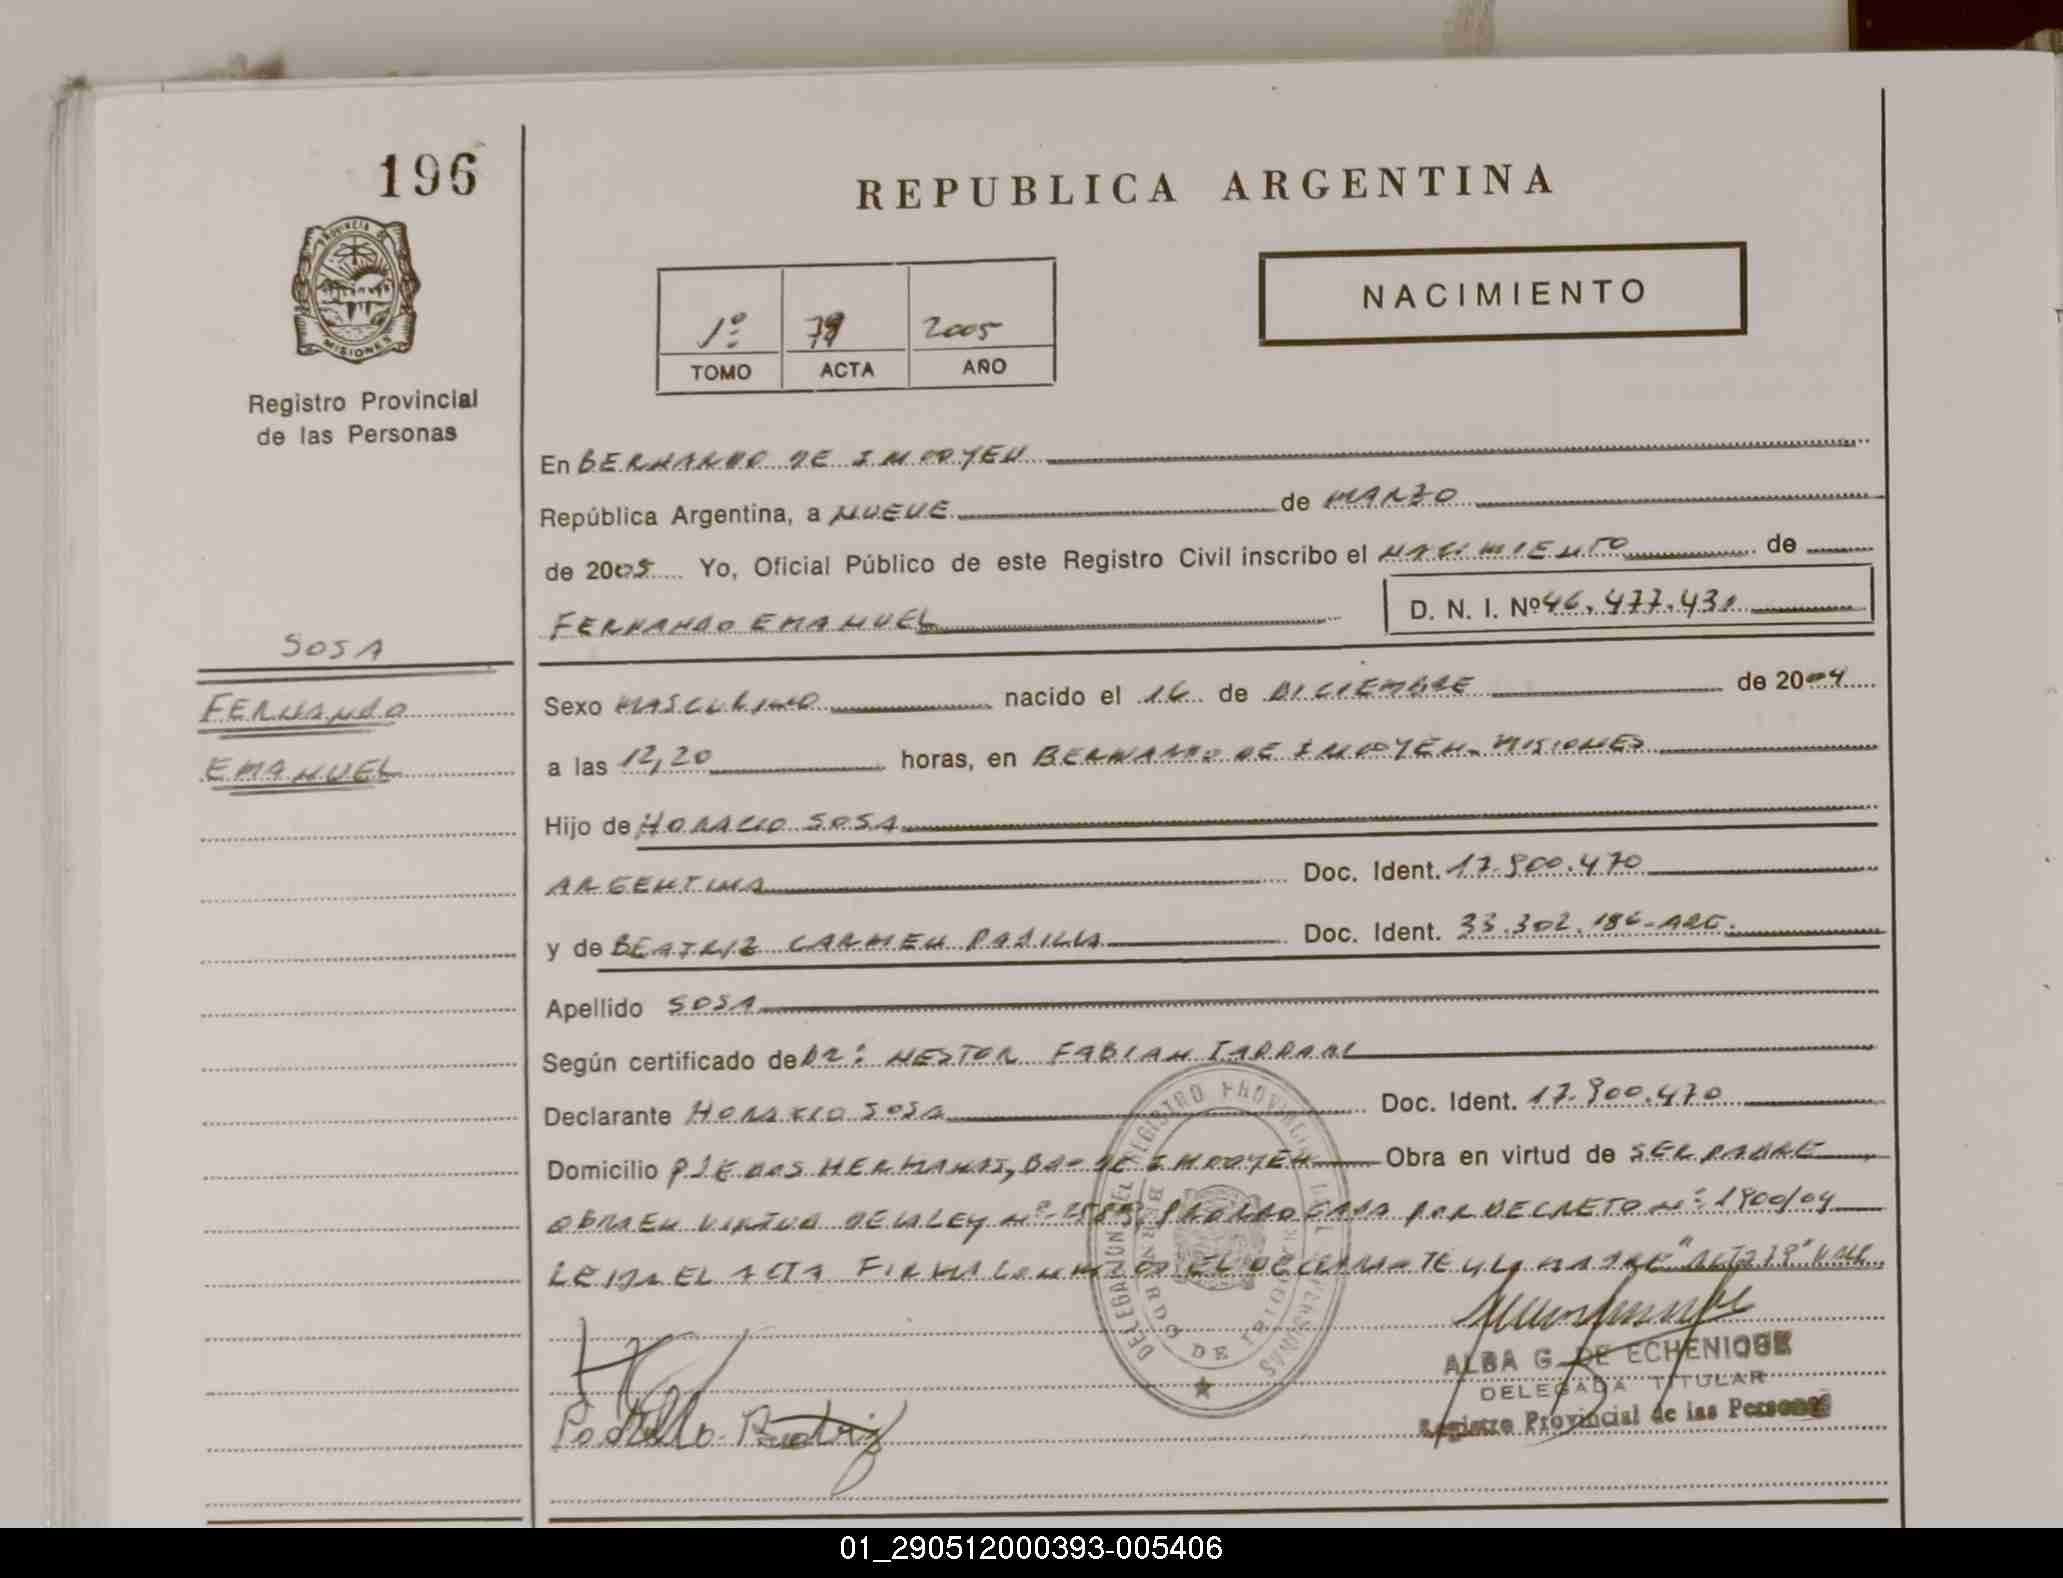 196
REPUBLICA ARGENTINA
PROVINCIA DE
MISIONES
NACIMIENTO
1º 2005
TOMO ACTA AÑO
Registro Provincial
de las Personas
En BERNARDO DE IRIGOYEN
República Argentina, a NUEVE de MARZO
de 2005 Yo, Oficial Público de este Registro Civil inscribo el NACIMIENTO de
FERNANDO EMANUEL D. N. I. Nº 46.477.431
SOSA
FERNANDO
EMANUEL
Sexo MASCULINO nacido el 16 de DICIEMBRE de 2004
a las 12,20 horas, en BERNARDO DE IRIGOYEN - MISIONES
Hijo de HORACIO SOSA
ARGENTINA Doc. Ident. 17.900.470
y de BEATRIZ CARMEN PADILLA Doc. Ident. 33.302.186-ARG.
Apellido SOSA
Según certificado de DR: NESTOR FABIAN
Declarante HORACIO SOSA Doc. Ident. 17.900.470
Domicilio HERMANAS, BDO DE IRIGOYEN Obra en virtud de SER PADRE
OBRA EN VIRTUD DE LA LEY Nº PRORROGADA POR DECRETO Nº 1900/04
LEIDA EL ACTA FIRMA CONMIGO EL DECLARANTE Y LA MADRE "ACTA 79" VALE
DELEGACION DEL REGISTRO PROVINCIAL DE LAS PERSONAS
BERNARDO DE IRIGOYEN
ALBA G. DE ECHENIQUE
DELEGADA TITULAR
Registro Provincial de las Personas
Beatriz
01_290512000393-005406